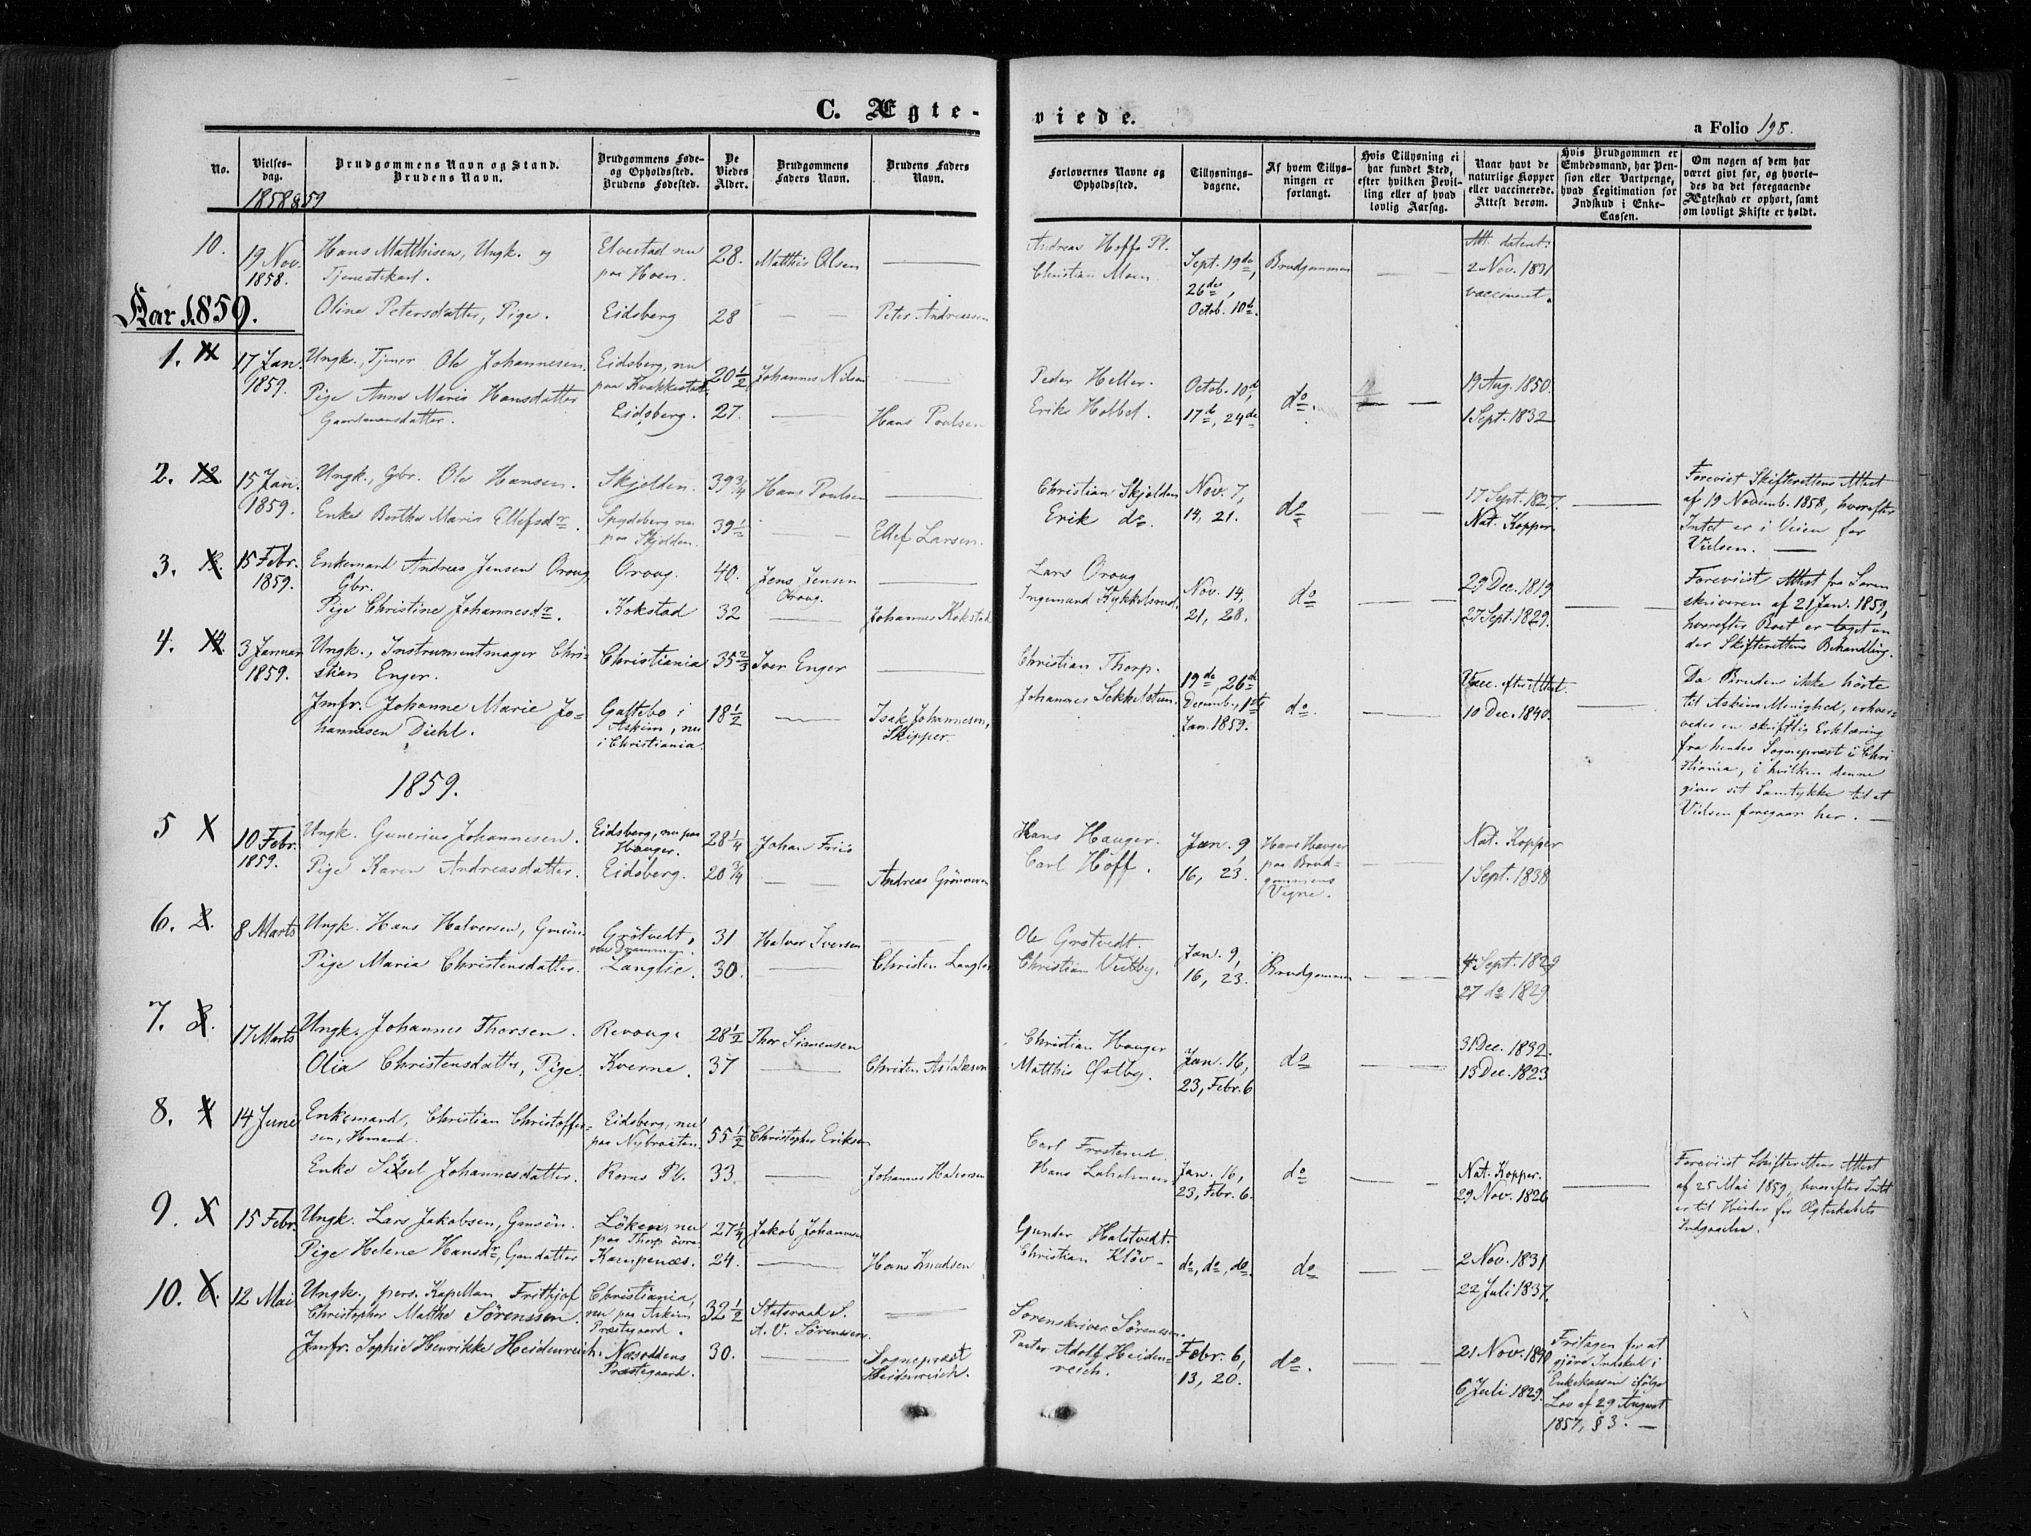 C. Ægte-
viede.
a Folio 198.
No.
Vielses-
dag.
1858 & 59
Brudgommens Navn og Stand.
Brudens Navn.
Brudgommens Føde-
og Opholdssted.
Brudens Fødested.
De
Viedes
Alder.
Brudgommens
Faders Navn.
Brudens Faders
Navn.
Forlovernes Navne og
Opholdssted.
Tillysnings-
dagene.
Af hvem Tillys-
ningen er
forlangt.
Hvis Tillysning ei
har fundet Sted,
efter hvilken Bevil-
ling eller af hvad
lovlig Aarsag.
Naar havt de
naturlige Kopper
eller vaccinerede.
Attest derom.
Hvis Brudgommen er
Embedsmand, har Pen-
sion eller Vartpenge,
hvad Legitimation for
Indskud i Enke-
Cassen.
Om nogen af dem har
været givt før, og hvorle-
des da det foregaaende
Ægteskab er ophørt, samt
om lovligt Skifte er holdt.
10.
19 Nov.
1858.
Hans Matthisen, Ungk. og
Tjenestkarl.
Oline Petersdatter, Pige.
Elvestad nu
paa Hoen.
Eidsberg
28.
28
Matthis Olsen
Peter Andreasen
Andreas Hoff Pl.
Christian Moen
Sept. 19de,
26de,
Octob. 10d.
Brudgommen
Att. dateret.
2 Nov. 1831
vaccineret.
Aar 1859.
1. 11
17 Jan.
1859.
Ungk., Tjener Ole Johannesen.
Pige Anne Maria Hansdatter
Gaardmansdatter.
Eidsberg, nu
paa Krakkestad.
Eidsberg.
20 1/2
27.
Johannes Nilsen
Hans Poulsen
Peder Heller.
Erik Holbel.
Octob. 10d,
17d, 24de
do.
19 Aug. 1850.
1 Sept. 1832
2. 12
15 Jan.
1859.
Ungk., Gbr. Ole Hansen.
Enke Berthe Maria Ellefsdr.
Skjolden.
Spydeberg nu
paa Skjolden.
39 3/4
39 1/2
Hans Poulsen
Ellef Larsen.
Christian Skjolden
Erik do.
Nov. 7,
14, 21.
do
17 Sept. 1827.
Nat. Kopper
Foreviist Skifterettens Attest
af 19 Novemb. 1858, hvorefter
Intet er i Veien for
Vielsen.
3. 13.
15 Febr.
1859.
Enkemand Andreas Jensen Oroug,
Gbr.
Pige Christine Johannesdr.
Oroug.
Kokstad
40.
32
Jens Jensen
Oroug.
Johannes Kokstad
Lars Oroug
Ingemand Kykkelsrud.
Nov. 14,
21, 28.
do
29 Dec. 1819
27 Sept. 1829.
Foreviist Attest fra Soren
skriveren af 21 Jan. 1859,
hvorefter Boet er taget un
der Skifterettens Behandling.
4. 14.
3 Januar
1859.
Ungk., Instrumentmager Chri-
stian Enger.
Jmfr. Johanne Marie Jo-
hannesen Diehl.
Christiania
Gattebo i
Askim, nu
i Christiania.
35 2/3
18 1/2
Iver Enger
Isak Johannesen,
Skipper.
Christian Thorp.
Johannes Sekkelsteen.
19de, 26de
Decemb., 1ste
Jan. 1859.
do.
Vacc. efter Attest.
10 Dec. 1840.
Da Bruden ikke hörte
til Askims Menighed, erhver-
vedes en skriftlig Erklæring
fra hendes Sognepræst i Chri
stiania, i hvilken denne
giver sit Samtykke til at
Vielsen foregaar her.
1859.
5
10 Febr.
1859.
Ungk. Gunerius Johannesen.
Pige Karen Andreasdatter.
Eidsberg, nu paa
Hauger.
Eidsberg.
28 1/4
20 3/4
Johan Friis
Andreas Grönneren
Hans Hauger.
Carl Hoff.
Jan. 9,
16, 23.
Hans Hauger
paa Brud-
gommens
Vegne.
Nat. Kopper
1 Sept. 1838
6. 2.
8 Marts
Ungk. Hans Halversen, Gmsön.
Pige Maria Christensdatter.
Grötvedt,
Langlie.
31
30.
Halvor Iversen
Christen Langlie
Ole Grötvedt.
Christian Vestby.
Jan. 9,
16, 23.
Brudgommen
4 Sept. 1829
27 do 1829
7. 3.
17 Marts
Ungk. Johannes Thorsen.
Olia Christensdatter, Pige
Revoug.
Kverne.
28 1/2
37
Thor Simensen
Christen Aslaksen
Christian Hauger
Matthis Østby.
Jan. 16,
23, Febr. 6
do
31 Dec. 1832.
13 Dec. 1823
8. 4
14 June
Enkemand, Christian Christoffer-
sen, Hmand.
Enke Sissel Johannesdatter.
Eidsberg, nu
paa Nybraaten
Roms Pl.
55 1/2
33.
Christopher Eriksen
Johannes Halvorsen
Carl Frosterud.
Hans Laholmen
Jan. 16,
23, Febr. 6.
do
Nat. Kopper.
29 Nov. 1826
Foreviist Skifterettens Attest
af 25 Mai 1859, hvorefter Intet
er til Hinder for Ægteskabets
Indgaaelse.
9. 5
15 Febr.
Ungk. Lars Jakobsen, Gmsön.
Pige Helene Hansdr, Gmdatter
Löken, nu
paa Thorp övre
Kampenæs.
27 1/4
24.
Jakob Johannesen
Hans Knudsen
Gunder Halstvedt.
Christian Klöv
do, do, do.
do
2 Nov. 1831
22 Juli 1837.
10. 6.
12 Mai
Ungk., pers. Kapellan Frithjof
Christopher Malthe Sörenssen.
Jmfr. Sophie Henrikke Heidenreich.
Christiania,
nu paa Askim
Præstegaard.
Næsoddens
Præstegaard.
32 1/2
30.
Statsraad S.
A. V. Sörenssen.
Sognepræst
Heidenreich.
Sorenskriver Sörenssen.
Pastor Adolf Heiden-
reich.
Febr. 6,
13, 20.
do.
21 Nov. 1840
6 Juli 1829.
Fritagen for at
gjöre Indskud i
Enkekassen ifölge
Lov af 29 August
1857, § 3.